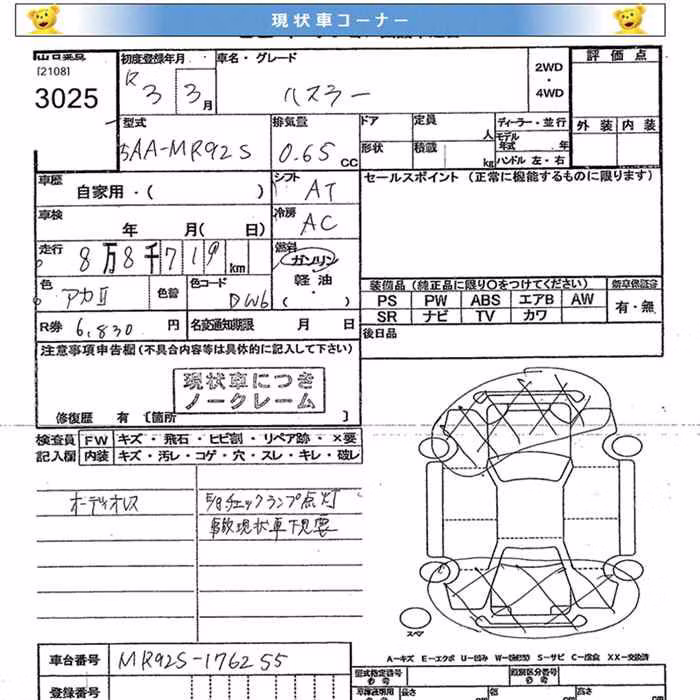 現状車コーナー
[2108]
3025
初度登録年月
R 3 3 月
車名・グレード
ハスラー
2WD
・
4WD
評価点
外装 内装
型式
5AA-MR92S
排気量
0.65 CC
ドア
定員
人
形状
積載
kg
ディーラー・並行
モデル年式 年
ハンドル 左・右
車歴
自家用・( )
シフト
AT
セールスポイント (正常に機能するものに限ります)
車検
年 月( 日)
冷房
AC
走行
8万8千719 km
燃料
ガソリン
軽油
( ・ )
色
アカⅡ
色替
色コード
DW6
装備品 (純正品に限り○をつけてください)
PS PW ABS エアB AW
SR ナビ TV カワ
新車保証書
有・無
R券 6,830 円
名変通知期限 月 日
後日品
注意事項申告欄 (不具合内容等は具体的に記入して下さい)
現状車につき
ノークレーム
修復歴 有 〔箇所 〕
検査員
記入欄
FW キズ・飛石・ヒビ割・リペア跡・×要
内装 キズ・汚レ・コゲ・穴・スレ・キレ・破レ
オーディオレス
チェックランプ点灯
事故現状車下見要
スペア
A-キズ E-エクボ U-凹み S-サビ C-腐食 XX-交換済
車台番号 MR92S-176255
登録番号
型式指定番号
参考
類別区分番号
参考
長さ
幅
高さ